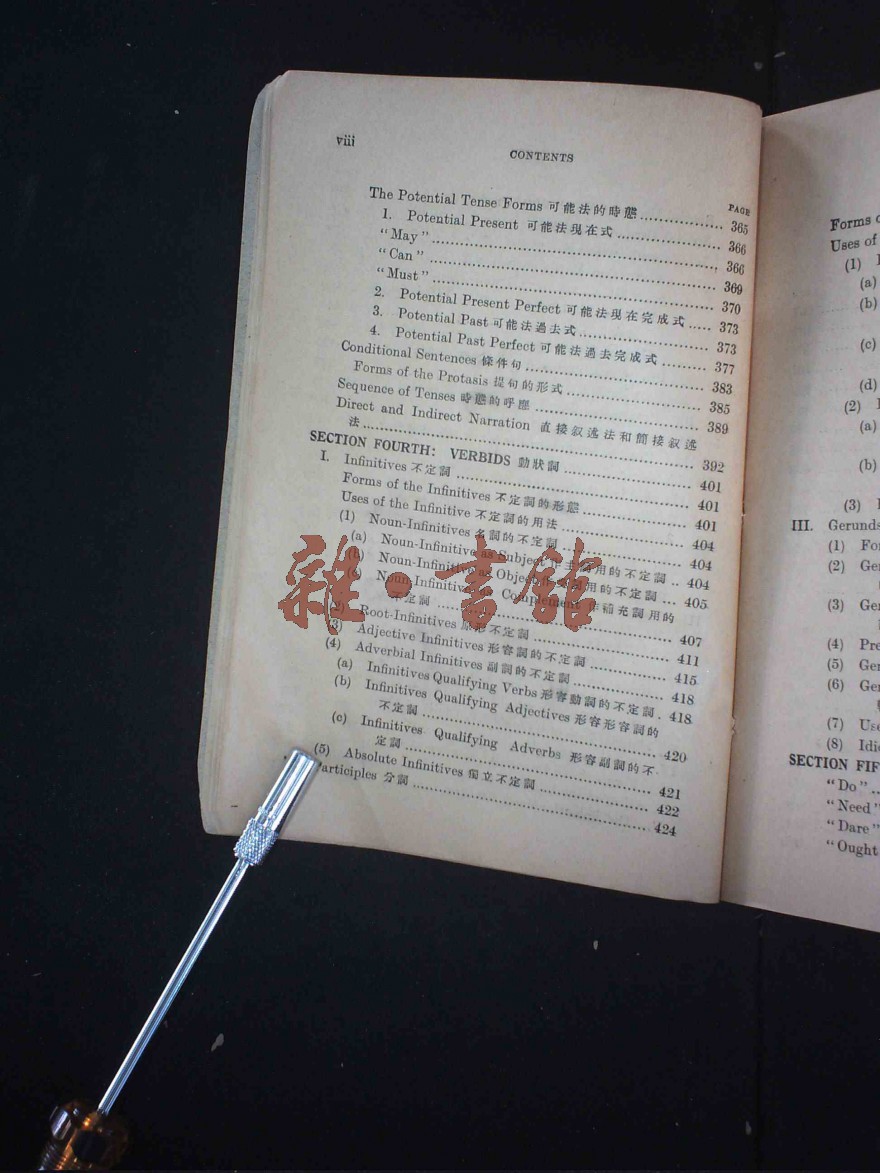 viii
CONTENTS
PAGE
The Potential Tense Forms 可能法的時態 365
1. Potential Present 可能法現在式 366
"May" 366
"Can" 369
"Must" 370
2. Potential Present Perfect 可能法現在完成式 373
3. Potential Past 可能法過去式 373
4. Potential Past Perfect 可能法過去完成式 377
Conditional Sentences 條件句 383
Forms of the Protasis 提句的形式 385
Sequence of Tenses 時態的呼應 389
Direct and Indirect Narration 直接叙述法和間接叙述
法 392
SECTION FOURTH: VERBIDS 動狀詞 401
I. Infinitives 不定詞 401
Forms of the Infinitives 不定詞的形態 401
Uses of the Infinitive 不定詞的用法 404
(1) Noun-Infinitives 名詞的不定詞 404
(a) Noun-Infinitive as Subject 作主詞用的不定詞 404
(b) Noun-Infinitive as Object 用的不定詞 405
(c) Noun-Infinitive Complement 作補充詞用的
不定詞 407
(2) Root-Infinitives 原形不定詞 411
(3) Adjective Infinitives 形容詞的不定詞 415
(4) Adverbial Infinitives 副詞的不定詞 418
(a) Infinitives Qualifying Verbs 形容動詞的不定詞 418
(b) Infinitives Qualifying Adjectives 形容形容詞的
不定詞 420
(c) Infinitives Qualifying Adverbs 形容副詞的不
定詞 421
(5) Absolute Infinitives 獨立不定詞 422
Participles 分詞 424
雜·書館
Forms
Uses of
(1)
(a)
(b)
(c)
(d)
(2)
(a)
(b)
(3)
III. Gerunds
(1)
(2)
(3)
(4)
(5)
(6)
(7)
(8)
SECTION
"Do"
"Need"
"Dare"
"Ought